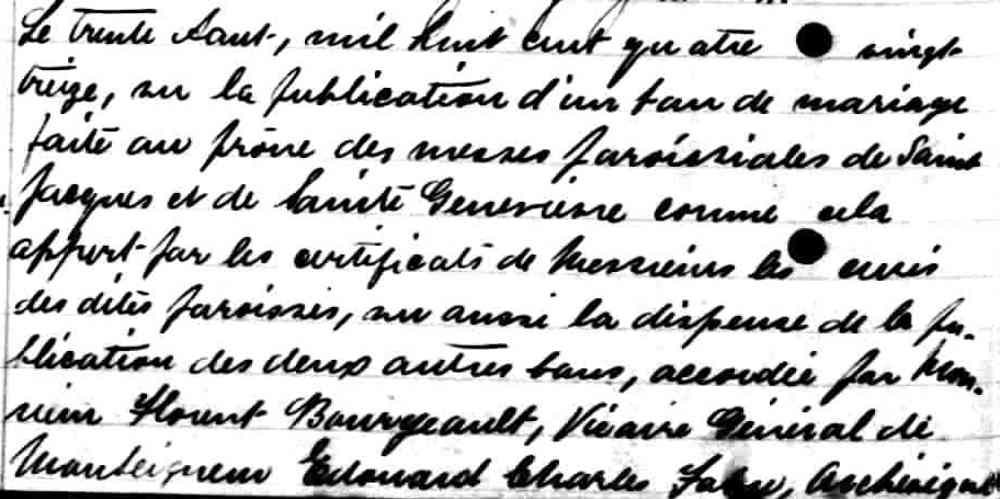 Le trente Aout, mil huit cent quatre vingt
treize, vu la publication d'un ban de mariage
faite au prône des messes paroissiales de Saint
Jacques et de Sainte Geneviève comme cela
appert par les certificats de Messieurs les curés
des dites paroisses, vu aussi la dispense de la pu-
blication des deux autres bans, accordée par Mon-
sieur Florent Bourgeault, Vicaire Général de
Monseigneur Edouard Charles Fabre, Archévique